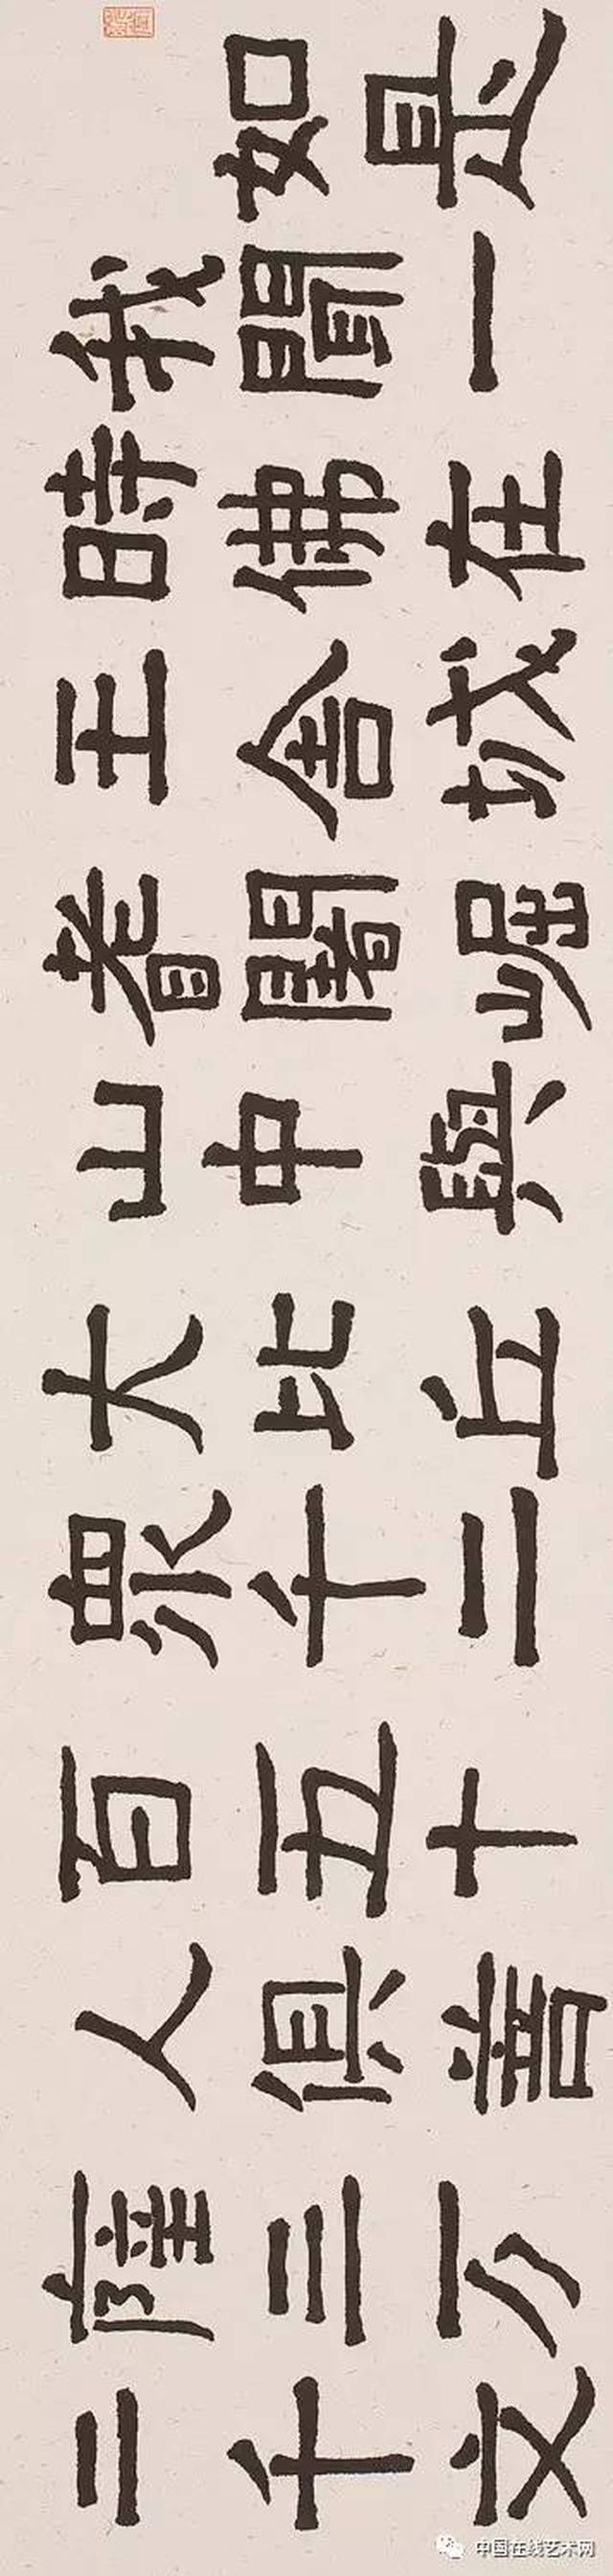 如是
我聞一
時佛在
王舍城
耆闍崛
山中與
大比丘
眾千二
百五十
人俱菩
薩三万
二千文
中国在线艺术网